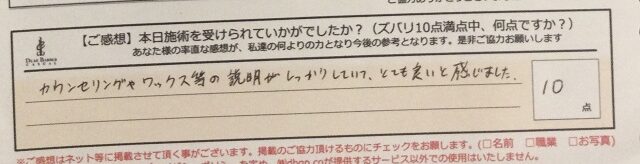 【ご感想】本日施術を受けられていかがでしたか？（ズバリ10点満点中、何点ですか？）
あなた様の率直な感想が、私達の何よりの力となり今後の参考となります。是非ご協力お願いします
カウンセリングやワックス等の説明がしっかりしていて、とても良いと感じました。
10
点
※ご感想はネット等に掲載させて頂く事がございます。掲載のご協力頂けるものにチェックをお願します。(□名前 □職業 □お写真)
が提供するサービス以外での使用はいたしません。